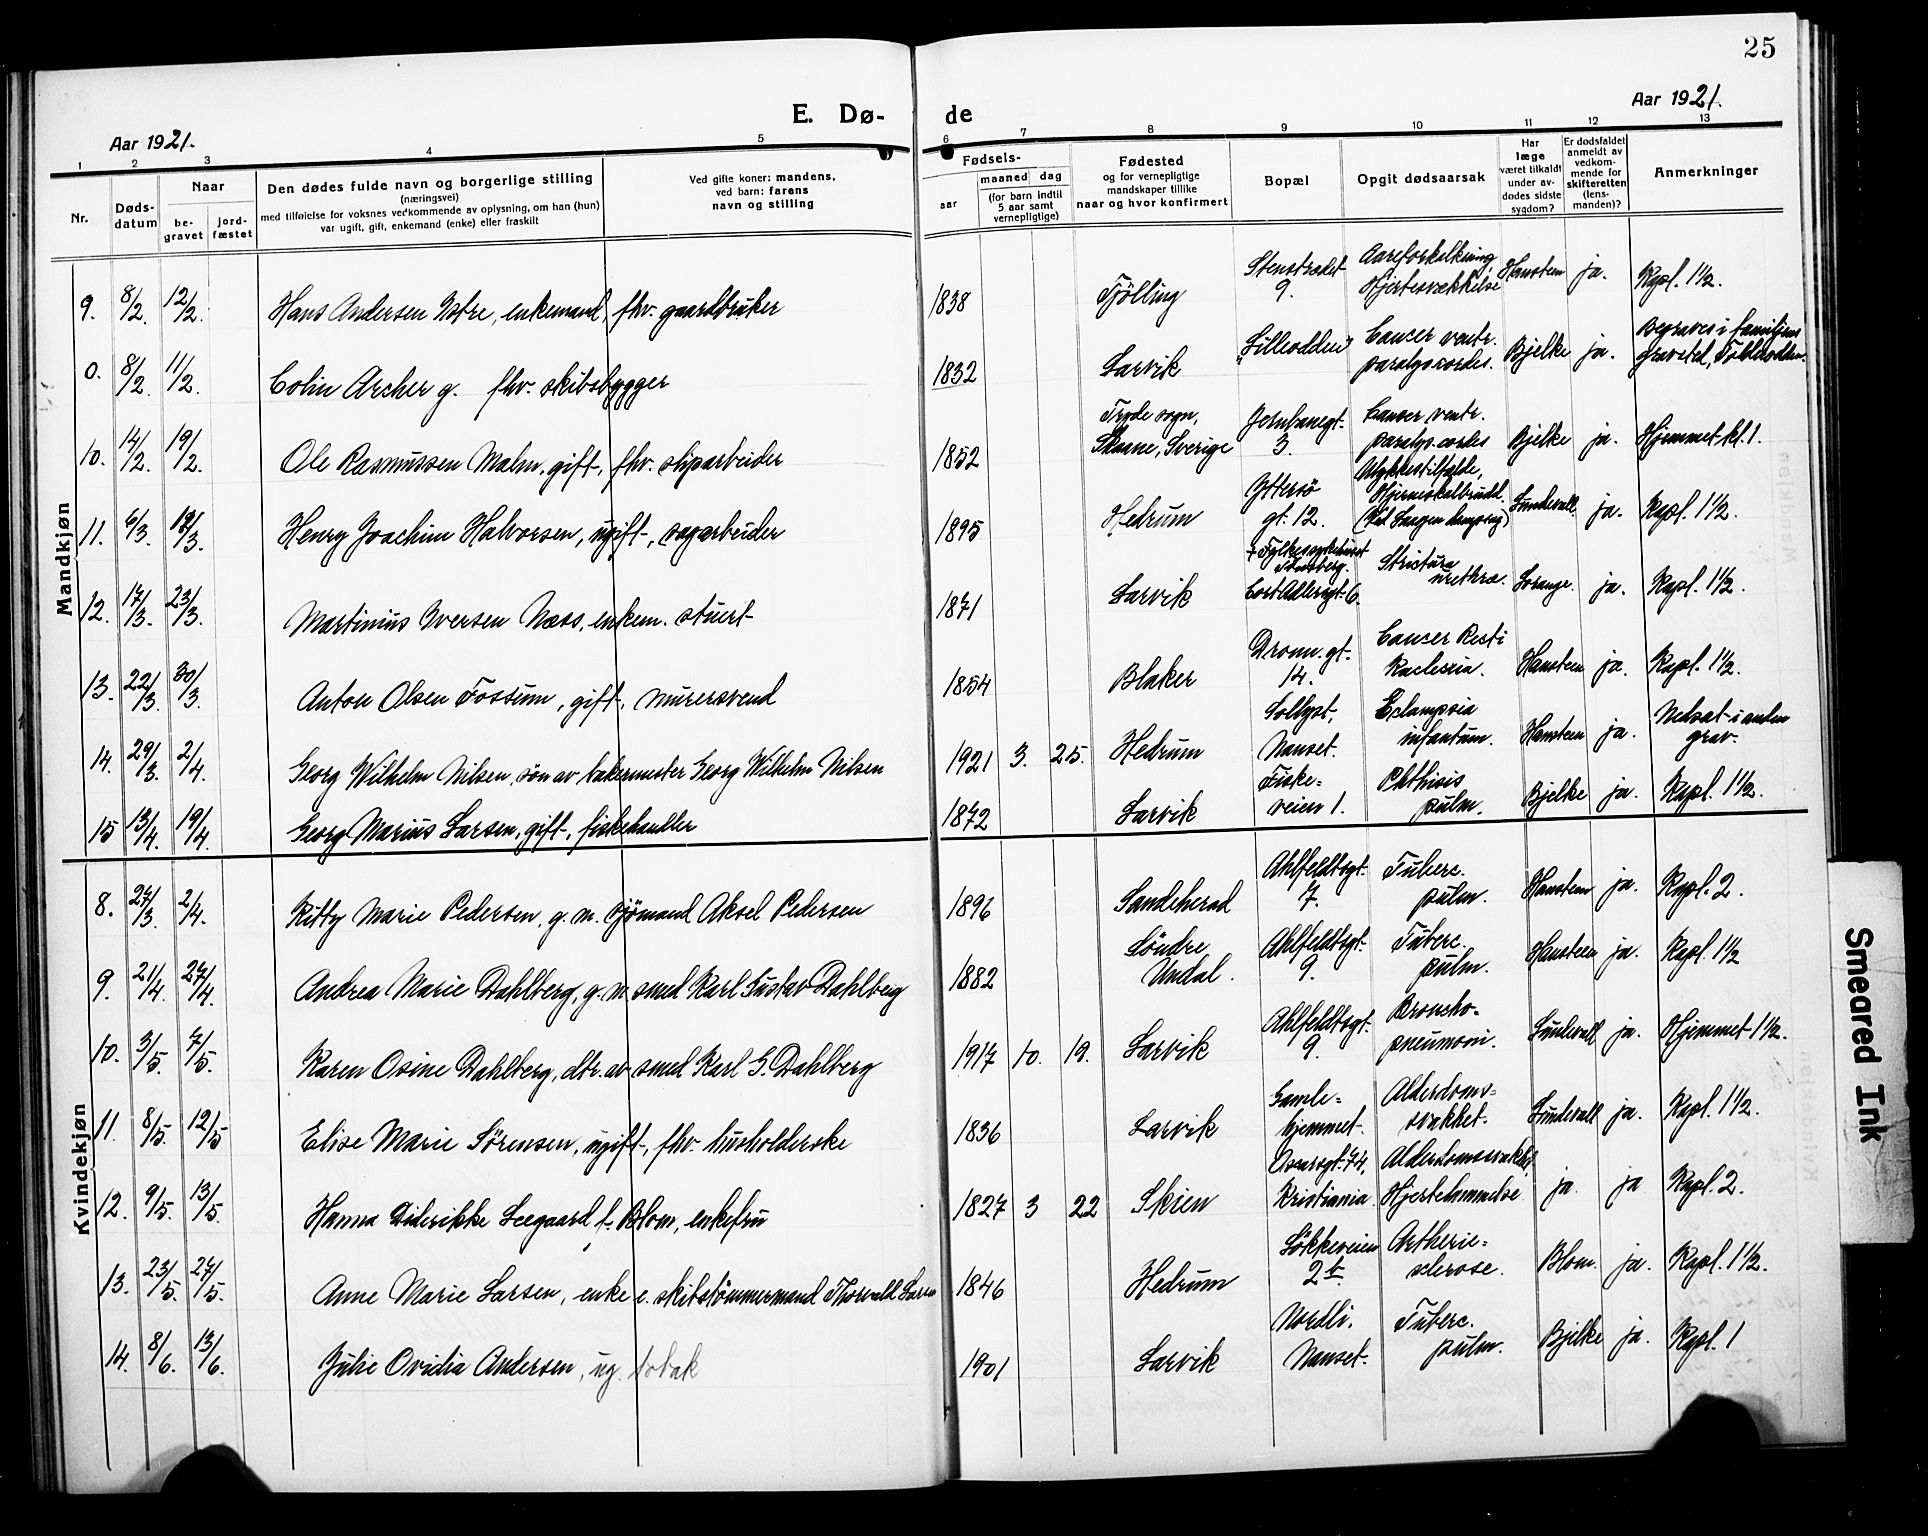 25
E. Dø- de
Aar 1921.
Aar 1921.
1 2 3 4 5 6 7 8 9 10 11 12 13
Nr.
Døds-
datum
Naar
be-
gravet
jord-
fæstet
Den dødes fulde navn og borgerlige stilling
(næringsvei)
med tilføielse for voksnes vedkommende av oplysning, om han (hun)
var ugift, gift, enkemand (enke) eller fraskilt
Ved gifte koner: mandens,
ved barn: farens
navn og stilling
Fødsels-
aar
maaned
dag
(for barn indtil
5 aar samt
vernepligtige)
Fødested
og for vernepligtige
mandskaper tillike
naar og hvor konfirmert
Bopæl
Opgit dødsaarsak
Har
læge
været tilkaldt
under av-
dødes sidste
sygdom?
Er dødsfaldet
anmeldt av
vedkom-
mende for
skifteretten
(lens-
manden)?
Anmerkninger
Mandkjøn
9. 8/2. 12/2. Hans Andersen Notre, enkemand, fhv. gaardbruker 1838 Tjölling 9. Aareforkalkning, Hjertesvækkelse Hansteen ja. Kapl. 1 1/2.
0. 8/2. 11/2. Colin Archer g. fhv. skibsbygger 1832 Larvik "Lilleodden" Cancer ventr. paralys. cordis. Bjelke ja. Begraves i familjens gravsted, Tollerodden.
10. 14/2. 19/2. Ole Rasmussen Malm, gift, fhv. sliparbeider 1852 Tryde sogn, Skaane, Sverige Jernbanegt. 3. Cancer ventr. paralys. cordis Bjelke ja. Hjemmet kl. 1.
11. 6/3. 12/3. Henry Joachim Halvorsen, ugift, sagarbeider 1895 Hedrum Yttersö gt. 12. Ulykkestilfælde, Hjerneskalbrudd. (Ved Laagen dampsag) Lundevall ja. Kapl. 1 1/2.
12. 17/3. 23/3. Martinius Iversen Næss, enkem. stuert 1871 Larvik + Fylkessykehuset Tønsberg. Cort Adlersgt. 6. Strictura urethræ. Lorange. ja. Kapl. 1 1/2.
13. 22/3. 30/3. Anton Olsen Fossum, gift, murersvend 1854 Blaker Dronn. gt. 14. Cancer Recti Kachexia. Hansteen ja. Kapl. 1 1/2.
14. 29/3. 2/4. Georg Wilhelm Nilsen, søn av bakermester Georg Wilhelm Nilsen 1921 3. 25. Hedrum Sollyst, Nanset. Eclampsia infantum. Hansteen ja. Nedsat i anden grav.
15 13/4. 19/4. Georg Marius Larsen, gift, fiskehandler 1872 Larvik Fiske-veien 1. Phthisis pulm. Bjelke ja. Kapl. 1 1/2.
Kvindekjøn
8. 27/3. 2/4. Kitty Marie Pedersen, g. m. sjömand Aksel Pedersen 1896 Sandeherad Ahlfeldtsgt. 7. Tuberc. pulm. Hansteen ja. Kapl. 2.
9. 21/4. 27/4. Andrea Marie Dahlberg, g. m. smed Karl Gustav Dahlberg 1882 Söndre Undal. Ahlfeldtsgt. 9. Tuberc. pulm. Hansteen ja. Kapl. 1 1/2
10. 3/5. 7/5. Karen Osine Dahlberg, dtr. av smed Karl G. Dahlberg 1917 10. 19. Larvik Ahlfeldtsgt. 9. Broncho-pneumoni. Lundevall ja. Hjemmet 1 1/2.
11. 8/5. 12/5 Elise Marie Sørensen, ugift, fhv. husholderske 1836 Larvik Gamle-hjemmet. Alderdoms-svakhet. Lundevall ja. Kapl. 1 1/2.
12. 9/5. 13/5. Hanna Diderikke Leegaard f. Blom, enkefru 1827 3 22 Skien Oscarsgt. 74, Kristiania Alderdomssvakhet Hjertelammelse ja ja Kapl. 2.
13. 23/5. 27/5. Anne Marie Larsen, enke e. skibstömmermand Thorvald Larsen 1846 Hedrum Løkkeveien 2 b. Artherie-sclerose. Blom. ja. Kapl. 1 1/2.
14. 8/6. 13/6. Julie Ovidia Andersen, ug. tobak 1901 Larvik Nordli, Nanset. Tuberc. pulm. Bjelke ja. Kapl. 1
Smeared Ink